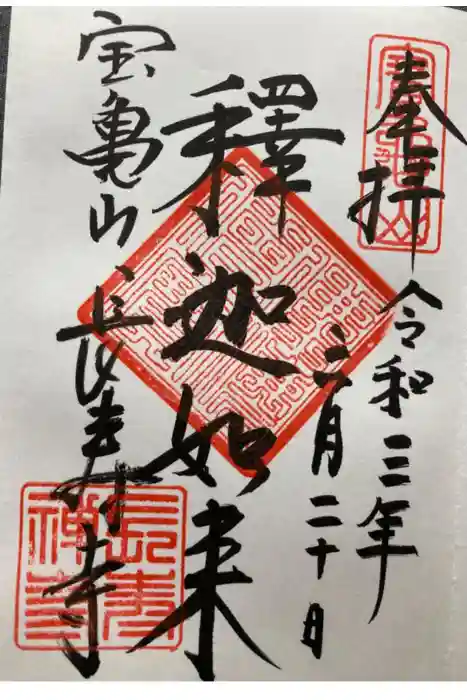 奉拝
令和三年
六月二十日
釋迦如来
宝亀山 長寿寺
長寿禅寺